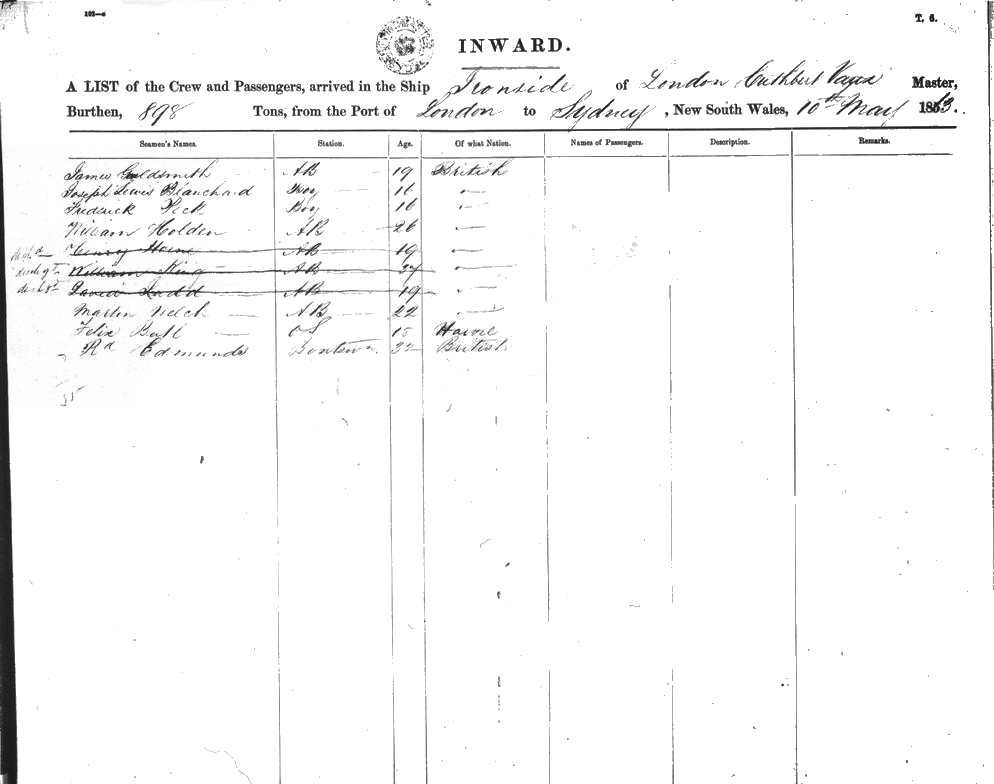 102—6
T. 6.
INWARD.
A LIST of the Crew and Passengers, arrived in the Ship Ironside of London Cuthbert Vaux Master,
Burthen, 898 Tons, from the Port of London to Sydney, New South Wales, 10th May 1863.
Seamen's Names. Station. Age. Of what Nation. Names of Passengers. Description. Remarks.
James Goldsmith AB 19 British
Joseph Lewis Blanchard Boy 16 "
Frederick Peck Boy 16 "
William Holden AB 26 "
Henry Horne AB 19 "
William King AB 27 "
David Ladd AB 19 "
Martin Welch AB 22 "
Felix Ball OS 15 Havre
Rd Edmunds 32 British